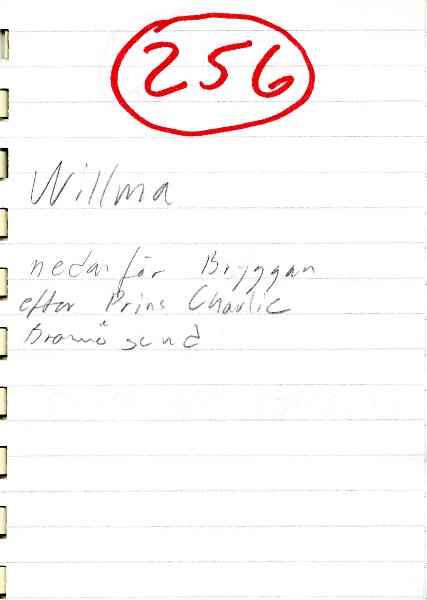 256
Willma
nedanför Bryggan
efter Prins Charlie
Bromö sund